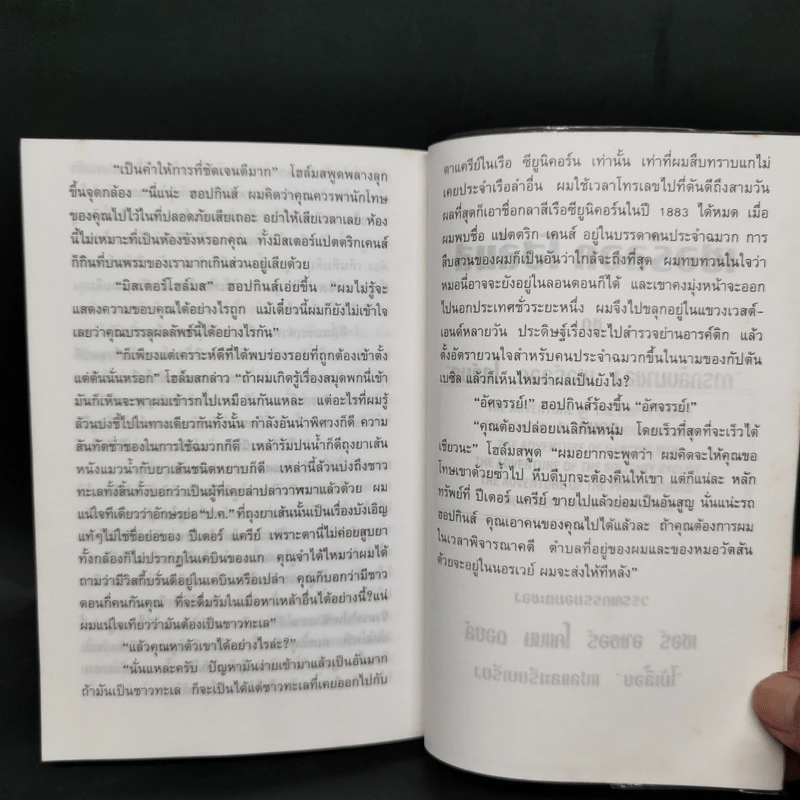 “เป็นคำให้การที่ชัดเจนดีมาก” โฮล์มสพูดพลางลุก
ขึ้นจุดกล้อง “นี่แน่ะ ฮอปกินส์ ผมคิดว่าคุณควรพานักโทษ
ของคุณไปไว้ในที่ปลอดภัยเสียเถอะ อย่าให้เสียเวลาเลย ห้อง
นี้ไม่เหมาะที่เป็นห้องขังหรอกคุณ ทั้งมิสเตอร์แปตตริกเคนส์
ก็กินที่บนพรมของเรามากเกินส่วนอยู่เสียด้วย
“มิสเตอร์โฮล์มส” ฮอปกินส์เอ่ยขึ้น “ผมไม่รู้จะ
แสดงความขอบคุณได้อย่างไรถูก แม้เดี๋ยวนี้ผมก็ยังไม่เข้าใจ
เลยว่าคุณบรรลุผลลัพธ์นี้ได้อย่างไรกัน”
“ก็เพียงแต่เคราะห์ดีที่ได้พบร่องรอยที่ถูกต้องเข้าตั้ง
แต่ต้นนั่นหรอก” โฮล์มสกล่าว “ถ้าผมเกิดรู้เรื่องสมุดพกนี่เข้า
มันก็เห็นจะพาผมเข้ารกไปเหมือนกันแหละ แต่อะไรที่ผมรู้
ล้วนบ่งชี้ไปในทางเดียวกันทั้งนั้น กำลังอันน่าพิศวงก็ดี ความ
สันทัดช่ำชองในการใช้ฉมวกก็ดี เหล้ารัมปนน้ำก็ดีถุงยาเส้น
หนังแมวน้ำกับยาเส้นชนิดหยาบก็ดี เหล่านี้ล้วนบ่งถึงชาว
ทะเลทั้งสิ้นทั้งบอกว่าเป็นผู้ที่เคยล่าปลาวาฬมาแล้วด้วย ผม
แน่ใจทีเดียวว่าอักษรย่อ “ป.ค.” ที่ถุงยาเส้นนั้นเป็นเรื่องบังเอิญ
แท้ๆไม่ใช่ชื่อย่อของ ปีเตอร์ แครีย์ เพราะตานี่ไม่ค่อยสูบยา
ทั้งกล้องก็ไม่ปรากฏในเคบินของแก คุณจำได้ไหมว่าผมได้
ถามว่ามีวิสกี้บรั่นดีอยู่ในเคบินหรือเปล่า คุณก็บอกว่ามีชาว
ดอนกี่คนกันคุณ ที่จะดื่มรัมในเมื่อหาเหล้าอื่นได้อย่างนี้?แน่
ผมแน่ใจเทียวว่ามันต้องเป็นชาวทะเล”
“แล้วคุณหาตัวเขาได้อย่างไรล่ะ?”
“นั่นแหละครับ ปัญหามันง่ายเข้ามาแล้วเป็นอันมาก
ถ้ามันเป็นชาวทะเล ก็จะเป็นได้แต่ชาวทะเลที่เคยออกไปกับ
ตาแครีย์ในเรือ ซียูนิคอร์น เท่านั้น เท่าที่ผมสืบทราบแกไม่
เคยประจำเรือลำอื่น ผมใช้เวลาโทรเลขไปที่ดันดีถึงสามวัน
ผลที่สุดก็เอาชื่อกลาสีเรือซียูนิคอร์นในปี 1883 ได้หมด เมื่อ
ผมพบชื่อ แปตตริก เคนส์ อยู่ในบรรดาคนประจำฉมวก การ
สืบสวนของผมก็เป็นอันว่าใกล้จะถึงที่สุด ผมทบทวนในใจว่า
หมอนี่อาจจะยังอยู่ในลอนดอนก็ได้ และเขาคงมุ่งหน้าจะออก
ไปนอกประเทศชั่วระยะหนึ่ง ผมจึงไปขลุกอยู่ในแขวงเวสต์-
เอนด์หลายวัน ประดิษฐ์เรื่องจะไปสำรวจย่านอารค์ติก แล้ว
ตั้งอัตรายวนใจสำหรับคนประจำฉมวกขึ้นในนามของกัปตัน
เบซิล แล้วก็เห็นไหมว่าผลเป็นยังไง?
“อัศจรรย์!” ฮอปกินส์ร้องขึ้น “อัศจรรย์!”
“คุณต้องปล่อยเนลิกันหนุ่ม โดยเร็วที่สุดที่จะเร็วได้
เชียวนะ” โฮล์มสพูด “ผมอยากจะพูดว่า ผมคิดจะให้คุณขอ
โทษเขาด้วยซ้ำไป หีบดีบุกจะต้องคืนให้เขา แต่ก็แน่ละ หลัก
ทรัพย์ที่ ปีเตอร์ แครีย์ ขายไปแล้วย่อมเป็นอันสูญ นั่นแน่ะรถ
ฮอปกินส์ คุณเอาคนของคุณไปได้แล้วละ ถ้าคุณต้องการผม
ในเวลาพิจารณาคดี ตำบลที่อยู่ของผมและของหมอวัตสัน
ด้วยจะอยู่ในนอรเวย์ ผมจะส่งให้ทีหลัง”